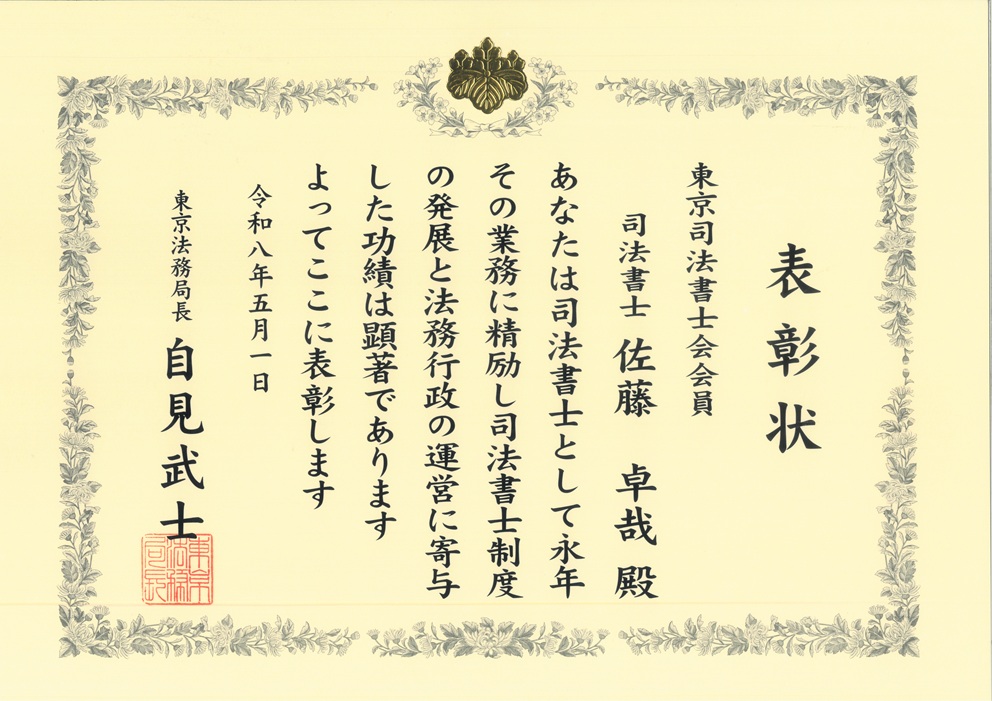 表彰状
東京司法書士会会員
司法書士 佐藤 卓哉 殿
あなたは司法書士として永年
その業務に精励し司法書士制度
の発展と法務行政の運営に寄与
した功績は顕著であります
よってここに表彰します
令和八年五月一日
東京法務局長 自見武士
東京
法務
局長